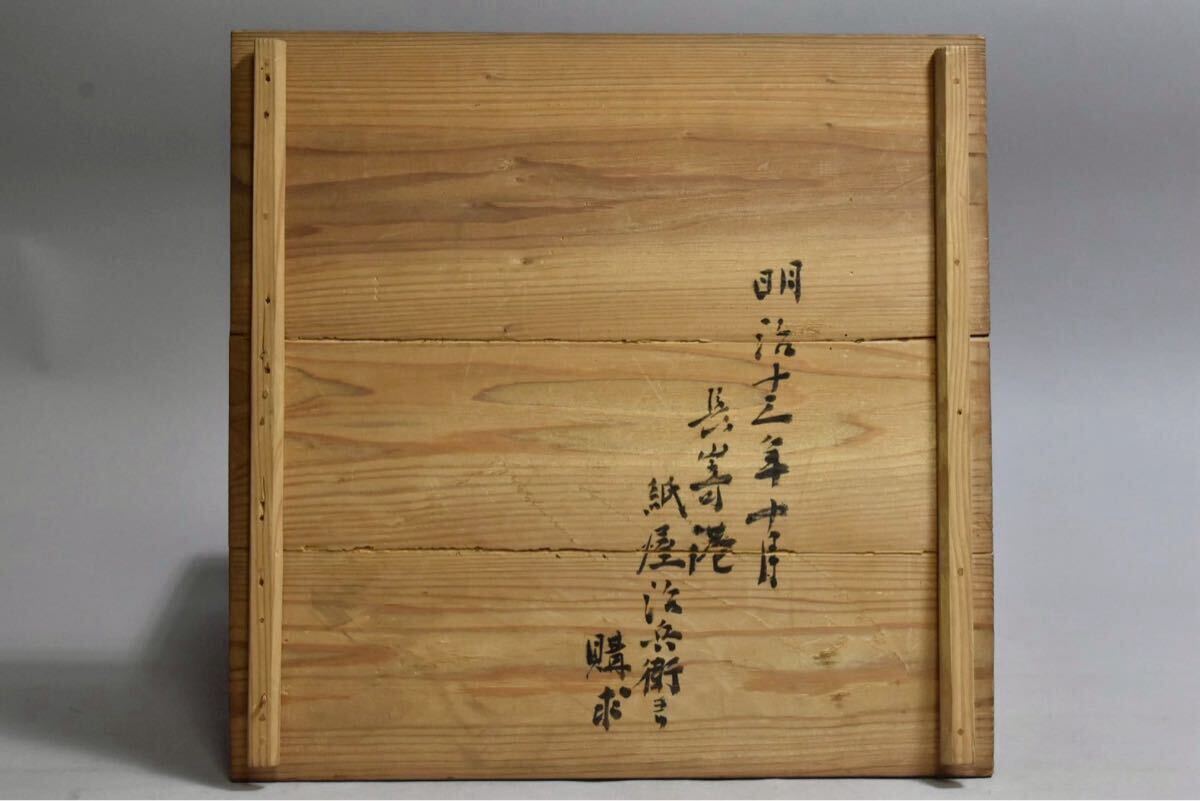 明治十三年十月
長嵜港
紙屋治兵衛ヨリ
購求